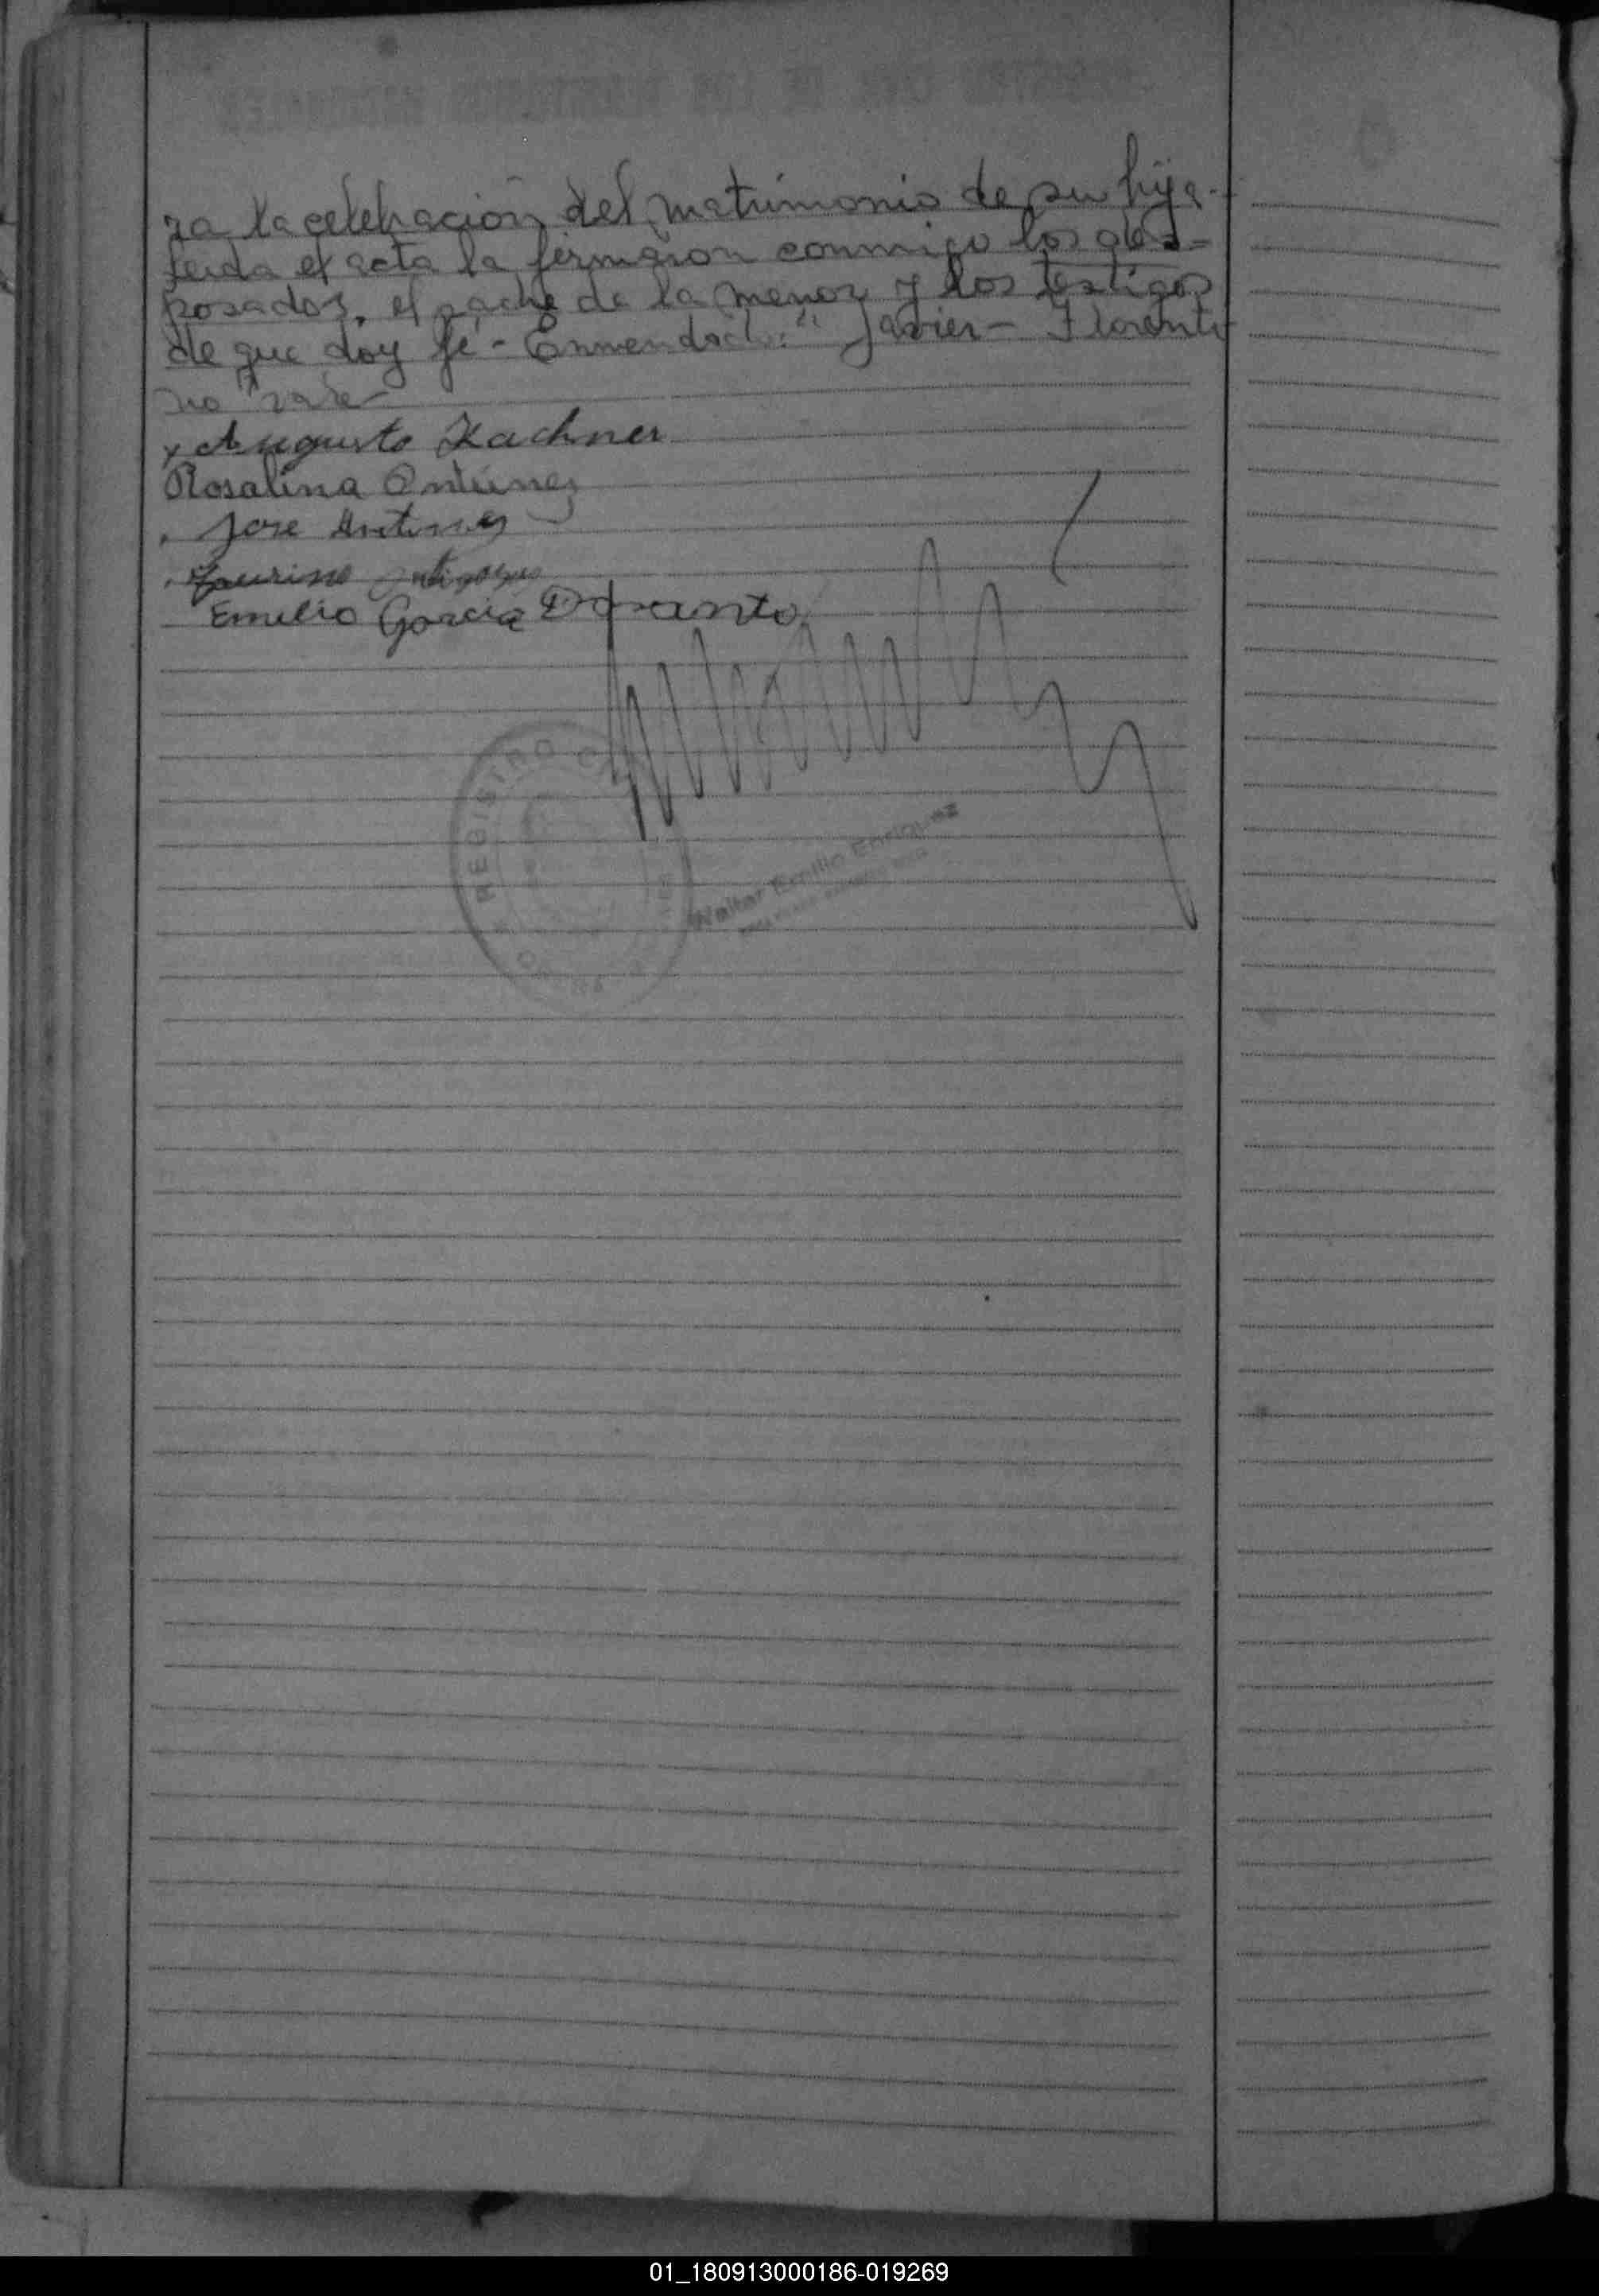 ra la celebración del matrimonio de su hija.-
Leida el acta la firmaron conmigo los des=
posados, el padre de la menor y los testigos
de que doy fé - Enmendado: "Javier - Florenti
no" vale
x Augusto Kachner
Rosalina Antunez
Jose Antunez
Emilio Garcia
REGISTRO
Walter Emilio Enriquez
01_180913000186-019269